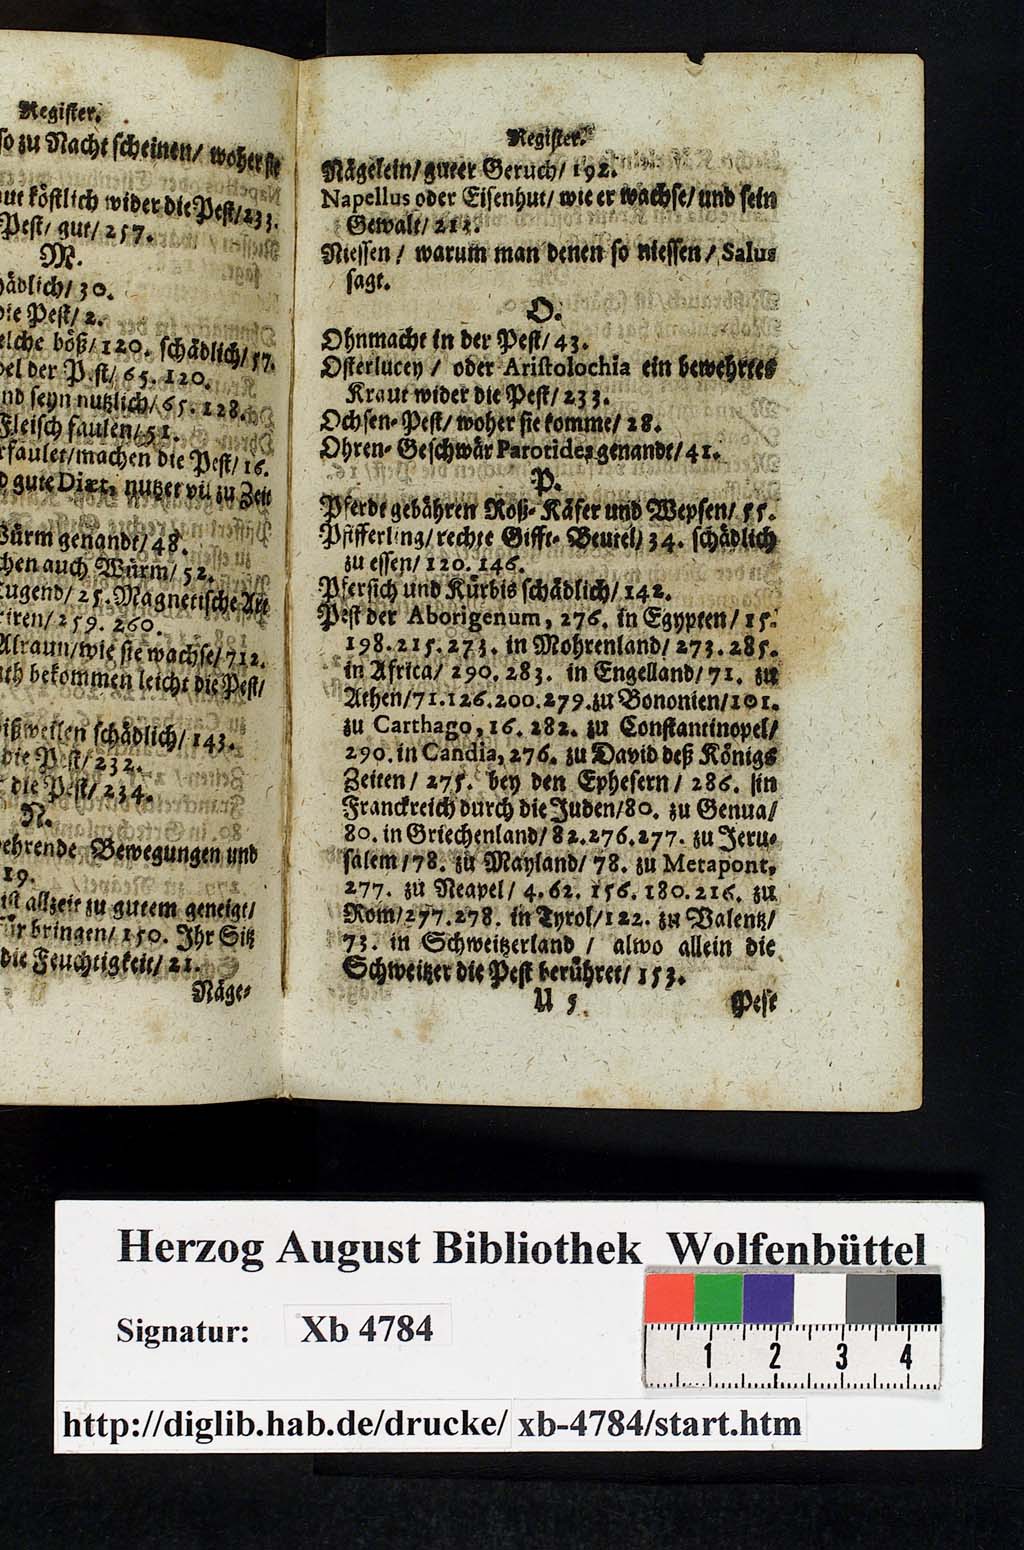 Register.
so zu Nacht scheinen/ woher sie
köstlich wider die Pest/233.
Pest/ gut/257.
M.
30.
die Pest/2.
böß/120. schädlich/57.
der Pest/65.120.
seyn nutzlich/65.128.
Fleisch faulen/51.
machen die Pest/16.
gute Diæt, nutzet vñ zu Zeit
Würm genandt/48.
auch Würm/52.
Tugend/25. Magnetische Art
259.260.
Alraun/wie sie wachse/712.
bekommen leicht die Pest/
schädlich/143.
die Pest/232.
die Pest/234.
N.
Bewegungen und
19.
ist allzeit zu gutem geneigt/
bringen/150. Ihr Sitz
die Feuchtigkeit/21.
Näge-
Register.
Nägelein/guter Geruch/192.
Napellus oder Eisenhut/ wie er wachse/ und sein
Gewalt/213.
Niessen/ warum man denen so niessen/ Salus
sagt.
O.
Ohnmacht in der Pest/43.
Osterlucey/ oder Aristolochia ein bewehrtes
Kraut wider die Pest/233.
Ochsen-Pest/woher sie komme/28.
Ohren-Geschwär Parotides genandt/41.
P.
Pferde gebähren Roß-Käfer und Wepsen/55.
Pfifferling/rechte Gifft-Beutel/34. schädlich
zu essen/120.146.
Pfersich und Kürbis schädlich/142.
Pest der Aborigenum, 276. in Egypten/15.
198.215.273. in Mohrenland/273.285.
in Africa/290.283. in Engelland/71. zu
Athen/71.126.200.279.zu Bononien/101.
zu Carthago, 16. 282. zu Constantinopel/
290. in Candia, 276. zu David deß Königs
Zeiten/275. bey den Ephesern/286. in
Franckreich durch die Juden/80. zu Genua/
80. in Griechenland/82.276.277. zu Jeru-
salem/78. zu Mayland/78. zu Metapont,
277. zu Neapel/4.62.156.180.216. zu
Rom/277.278. in Tyrol/122. zu Valentz/
73. in Schweitzerland/ alwo allein die
Schweitzer die Pest berühret/153.
U 5
Pest
Herzog August Bibliothek Wolfenbüttel
Signatur: Xb 4784
1 2 3 4
http://diglib.hab.de/drucke/ xb-4784/start.htm